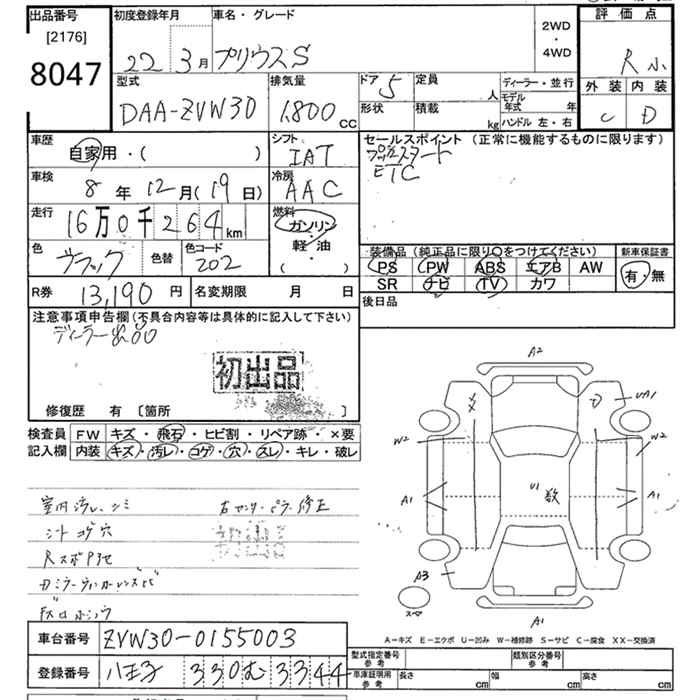 出品番号 初度登録年月 車名・グレード 評価点
[2176]
8047
22 3月 プリウスS
2WD
・
4WD
R 小
型式 排気量 ドア 5 定員 人 ディーラー・並行 外装 内装
DAA-ZVW30 1800 CC 形状 積載 kg モデル年式 年 ハンドル 左・右 C D
車歴 自家用・( ) シフト IAT セールスポイント (正常に機能するものに限ります)
スタート
ETC
車検 8年 12月(19日) 冷房 AAC
走行 16万0千264km 燃料 ガソリン・軽油・( )
色 ブラック 色替 色コード 202
装備品(純正品に限り○をつけてください) 新車保証書
PS PW ABS エアB AW 有・無
SR ナビ TV カワ
R券 13,190円 名変期限 月 日 後日品
注意事項申告欄(不具合内容等は具体的に記入して下さい)
ディーラー
初出品
修復歴 有 [箇所 ]
検査員記入欄 FW キズ・飛石・ヒビ割・リペア跡・×要
内装 キズ・汚レ・コゲ・穴・スレ・キレ・破レ
室内汚レ、シミ 右センターピラー修正
シート コゲ穴
初出品
A2
UA1
W2 W2
A1 U1 数 A1
A3
スペア A1
A-キズ E-エクボ U-凹み W-補修跡 S-サビ C-腐食 XX-交換済
車台番号 ZVW30-0155003 型式指定番号 参考 類別区分番号 参考
登録番号 八王子 330 む 3344 車庫証明用 参考 長さ cm 幅 cm 高さ cm